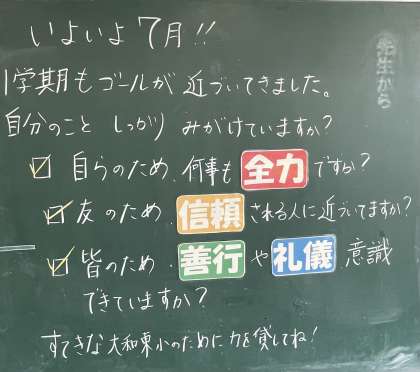 いよいよ7月!!
先生から
1学期もゴールが近づいてきました。
自分のこと しっかり みがけていますか?
☑ 自らのため 何事も 全力 ですか?
☑ 友のため 信頼 される人に近づいてますか?
☑ 皆のため 善行 や 礼儀 意識
できていますか?
すてきな大和東小のために力を貸してね!